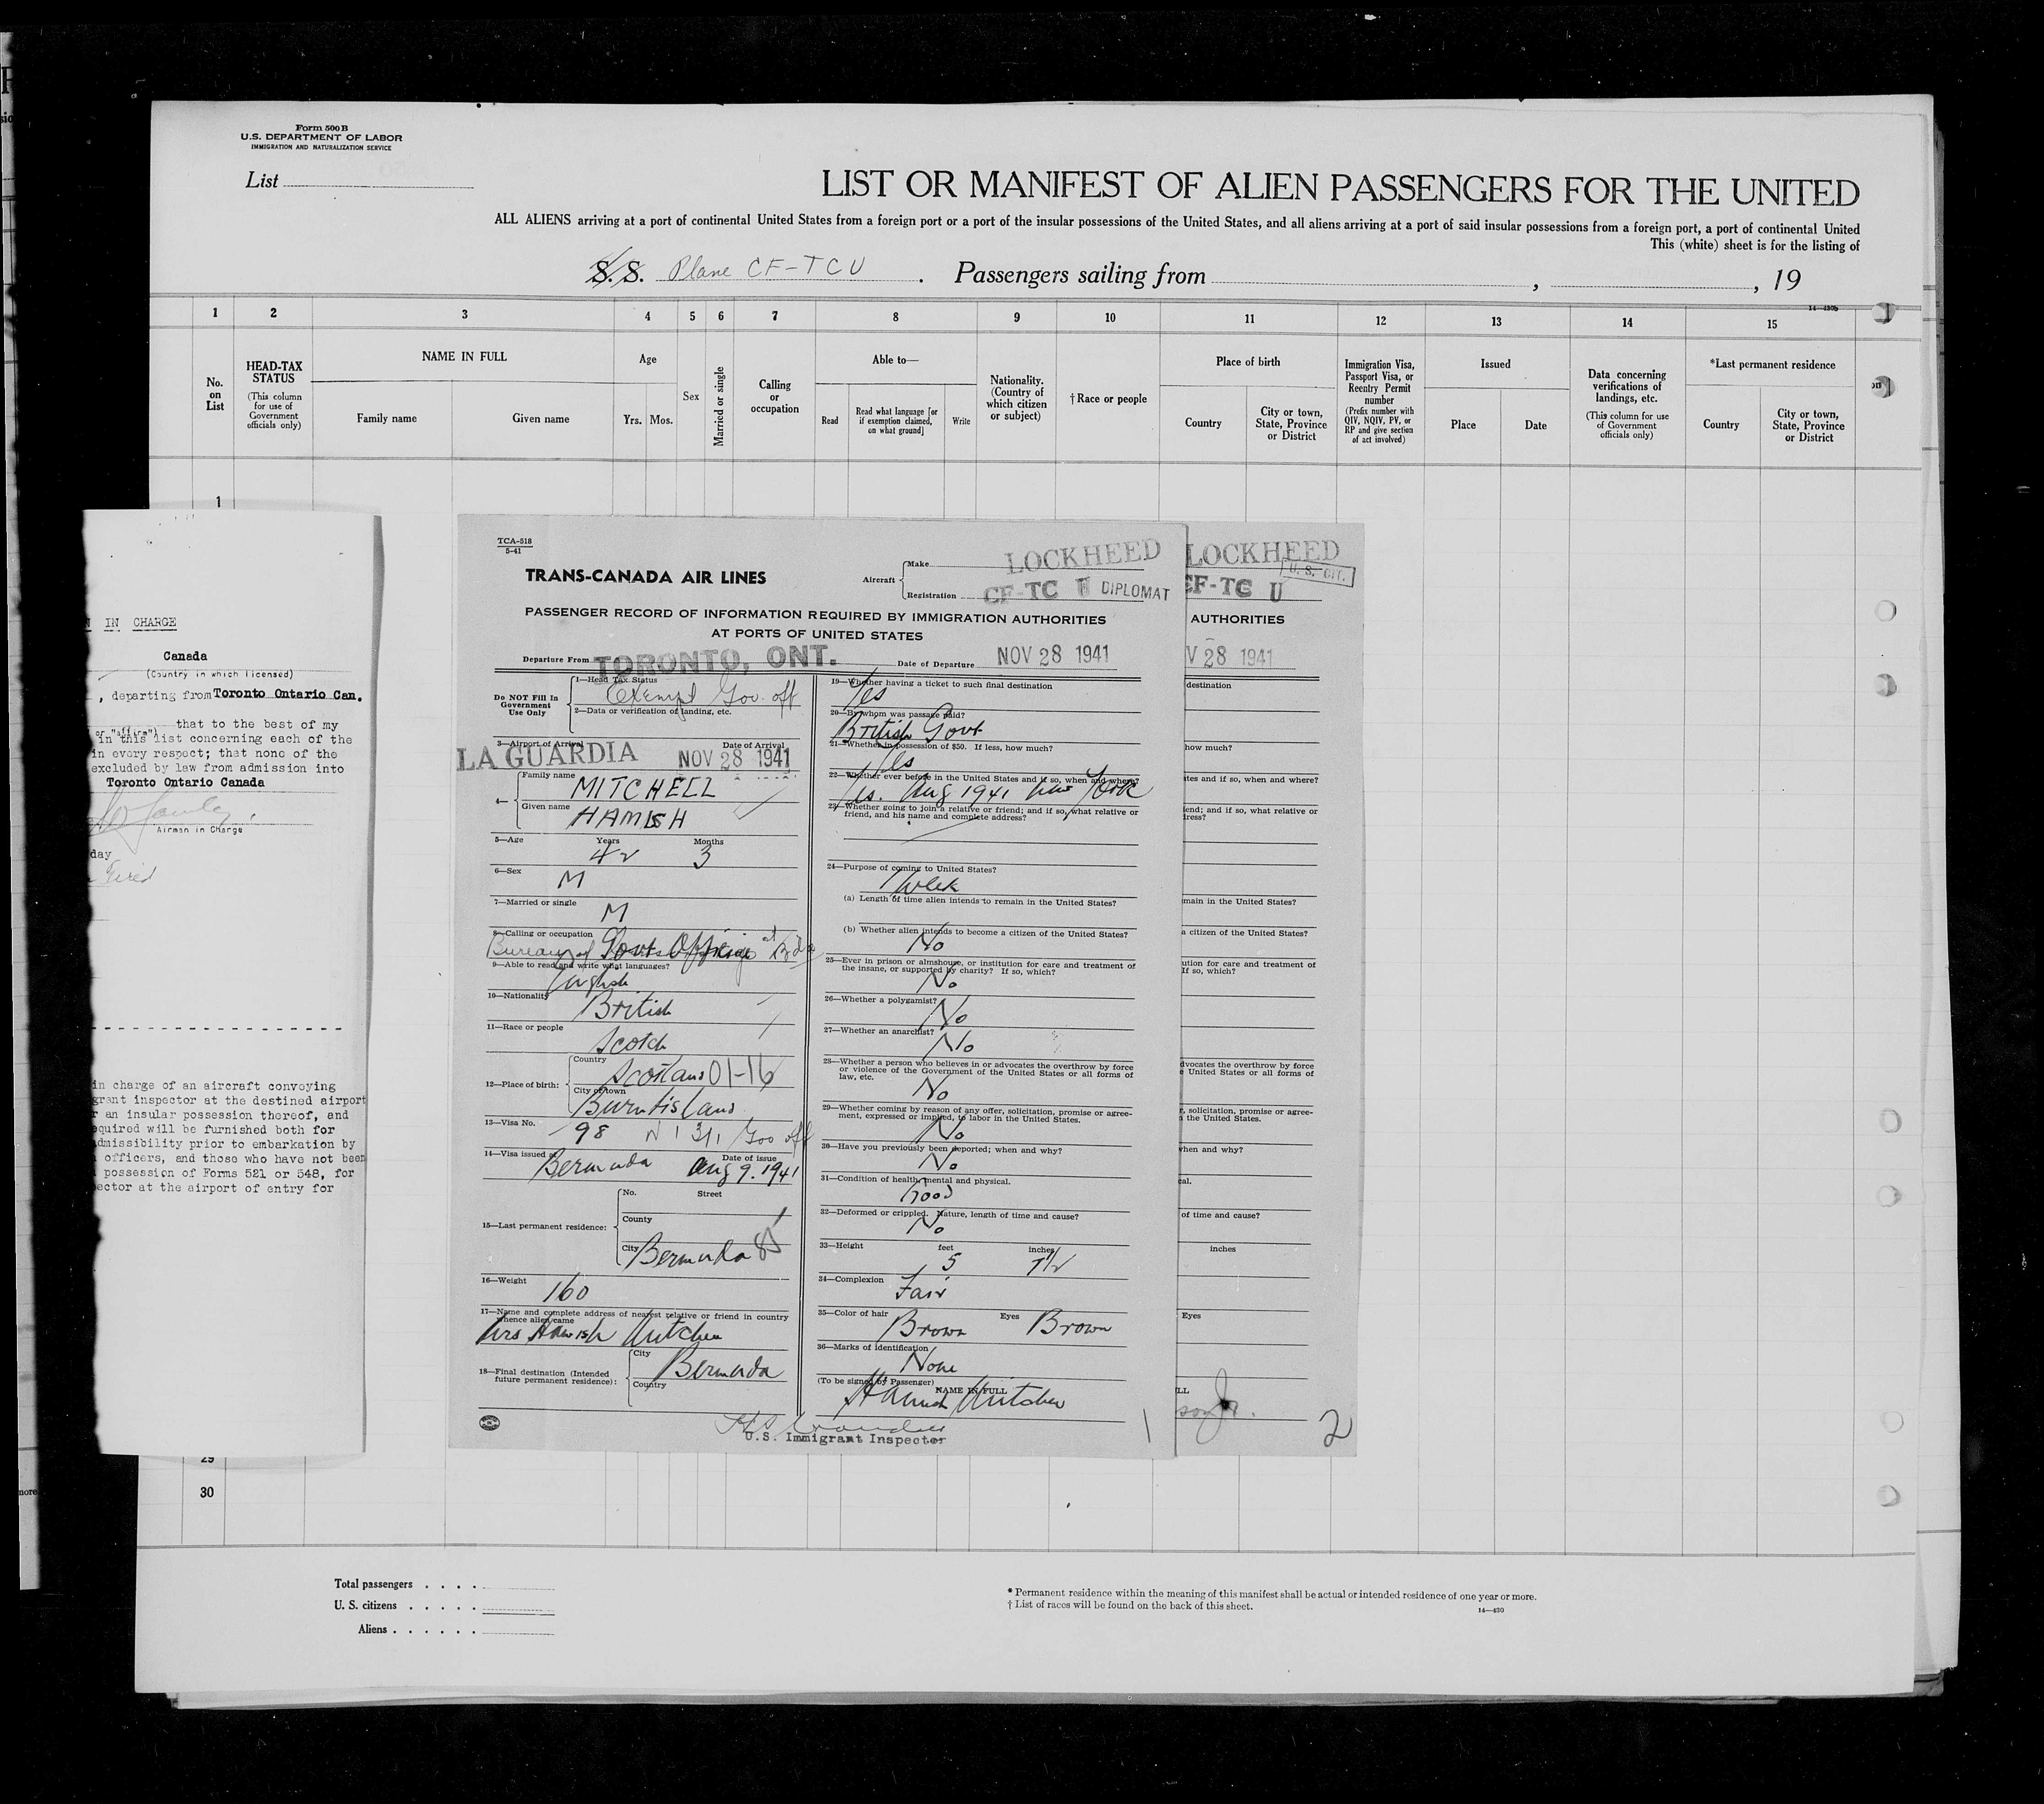 Form 500 B
U.S. DEPARTMENT OF LABOR
IMMIGRATION AND NATURALIZATION SERVICE
List
LIST OR MANIFEST OF ALIEN PASSENGERS FOR THE UNITED
ALL ALIENS arriving at a port of continental United States from a foreign port or a port of the insular possessions of the United States, and all aliens arriving at a port of said insular possessions from a foreign port, a port of continental United
This (white) sheet is for the listing of
S.S. Plane CF-TCU . Passengers sailing from , , 19
1 2 3 4 5 6 7 8 9 10 11 12 13 14 15
No. on List
HEAD-TAX STATUS
(This column for use of Government officials only)
NAME IN FULL
Family name
Given name
Age
Yrs. Mos.
Sex
Married or single
Calling or occupation
Able to—
Read
Read what language [or if exemption claimed, on what ground]
Write
Nationality. (Country of which citizen or subject)
† Race or people
Place of birth
Country
City or town, State, Province or District
Immigration Visa, Passport Visa, or Reentry Permit number
(Prefix number with QIV, NQIV, PV, or RP and give section of act involved)
Issued
Place
Date
Data concerning verifications of landings, etc.
(This column for use of Government officials only)
*Last permanent residence
Country
City or town, State, Province or District
1
IN CHARGE
Canada
(Country in which licensed)
, departing from Toronto Ontario Can.
or "affirm") that to the best of my
in this list concerning each of the
in every respect; that none of the
excluded by law from admission into
Toronto Ontario Canada
Airman in Charge
day
in charge of an aircraft convoying
grant inspector at the destined airport
r an insular possession thereof, and
equired will be furnished both for
admissibility prior to embarkation by
officers, and those who have not been
possession of Forms 521 or 548, for
ector at the airport of entry for
TCA-518
5-41
TRANS-CANADA AIR LINES
Aircraft
Make LOCKHEED
Registration CF-TC U DIPLOMAT
PASSENGER RECORD OF INFORMATION REQUIRED BY IMMIGRATION AUTHORITIES
AT PORTS OF UNITED STATES
Departure From TORONTO, ONT. Date of Departure NOV 28 1941
Do NOT Fill In Government Use Only
1—Head Tax Status
Exempt Gov. off
2—Data or verification of landing, etc.
3—Airport of Arrival Date of Arrival
LA GUARDIA NOV 28 1941
4—
Family name
MITCHELL
Given name
HAMISH
5—Age Years 42 Months 3
6—Sex
M
7—Married or single
M
8—Calling or occupation
Bureau of Govt Official at Bda
9—Able to read and write what languages?
English
10—Nationality
British
11—Race or people
Scotch
12—Place of birth:
Country
Scotland 01-16
City or town
Burntisland
13—Visa No.
98 N 1 3(1) Gov off
14—Visa issued at Date of issue
Bermuda Aug 9. 1941
15—Last permanent residence:
No. Street
County
City Bermuda
16—Weight
160
17—Name and complete address of nearest relative or friend in country whence alien came
Mrs Hamish Mitchell
18—Final destination (Intended future permanent residence):
City Bermuda
Country
19—Whether having a ticket to such final destination
Yes
20—By whom was passage paid?
British Govt
21—Whether in possession of $50. If less, how much?
Yes
22—Whether ever before in the United States and if so, when and where?
Yes. Aug 1941 New York
23—Whether going to join a relative or friend; and if so, what relative or
friend, and his name and complete address?
24—Purpose of coming to United States?
1 Week
(a) Length of time alien intends to remain in the United States?
(b) Whether alien intends to become a citizen of the United States?
No
25—Ever in prison or almshouse, or institution for care and treatment of
the insane, or supported by charity? If so, which?
No
26—Whether a polygamist?
No
27—Whether an anarchist?
No
28—Whether a person who believes in or advocates the overthrow by force
or violence of the Government of the United States or all forms of
law, etc.
No
29—Whether coming by reason of any offer, solicitation, promise or agree-
ment, expressed or implied, to labor in the United States.
No
30—Have you previously been deported; when and why?
No
31—Condition of health, mental and physical.
Good
32—Deformed or crippled. Nature, length of time and cause?
No
33—Height feet inches
5 7½
34—Complexion
Fair
35—Color of hair Eyes
Brown Brown
36—Marks of identification
None
(To be signed by Passenger)
NAME IN FULL
Hamish Mitchell
U.S. Immigrant Inspector
1
LOCKHEED
U.S. CIT.
CF-TC U
AUTHORITIES
V 28 1941
destination
how much?
tes and if so, when and where?
iend; and if so, what relative or
dress?
main in the United States?
a citizen of the United States?
ution for care and treatment of
If so, which?
dvocates the overthrow by force
e United States or all forms of
r, solicitation, promise or agree-
n the United States.
when and why?
cal.
of time and cause?
inches
Eyes
LL
son Jr.
2
29
30
Total passengers
U. S. citizens
Aliens
* Permanent residence within the meaning of this manifest shall be actual or intended residence of one year or more.
† List of races will be found on the back of this sheet.
14—430